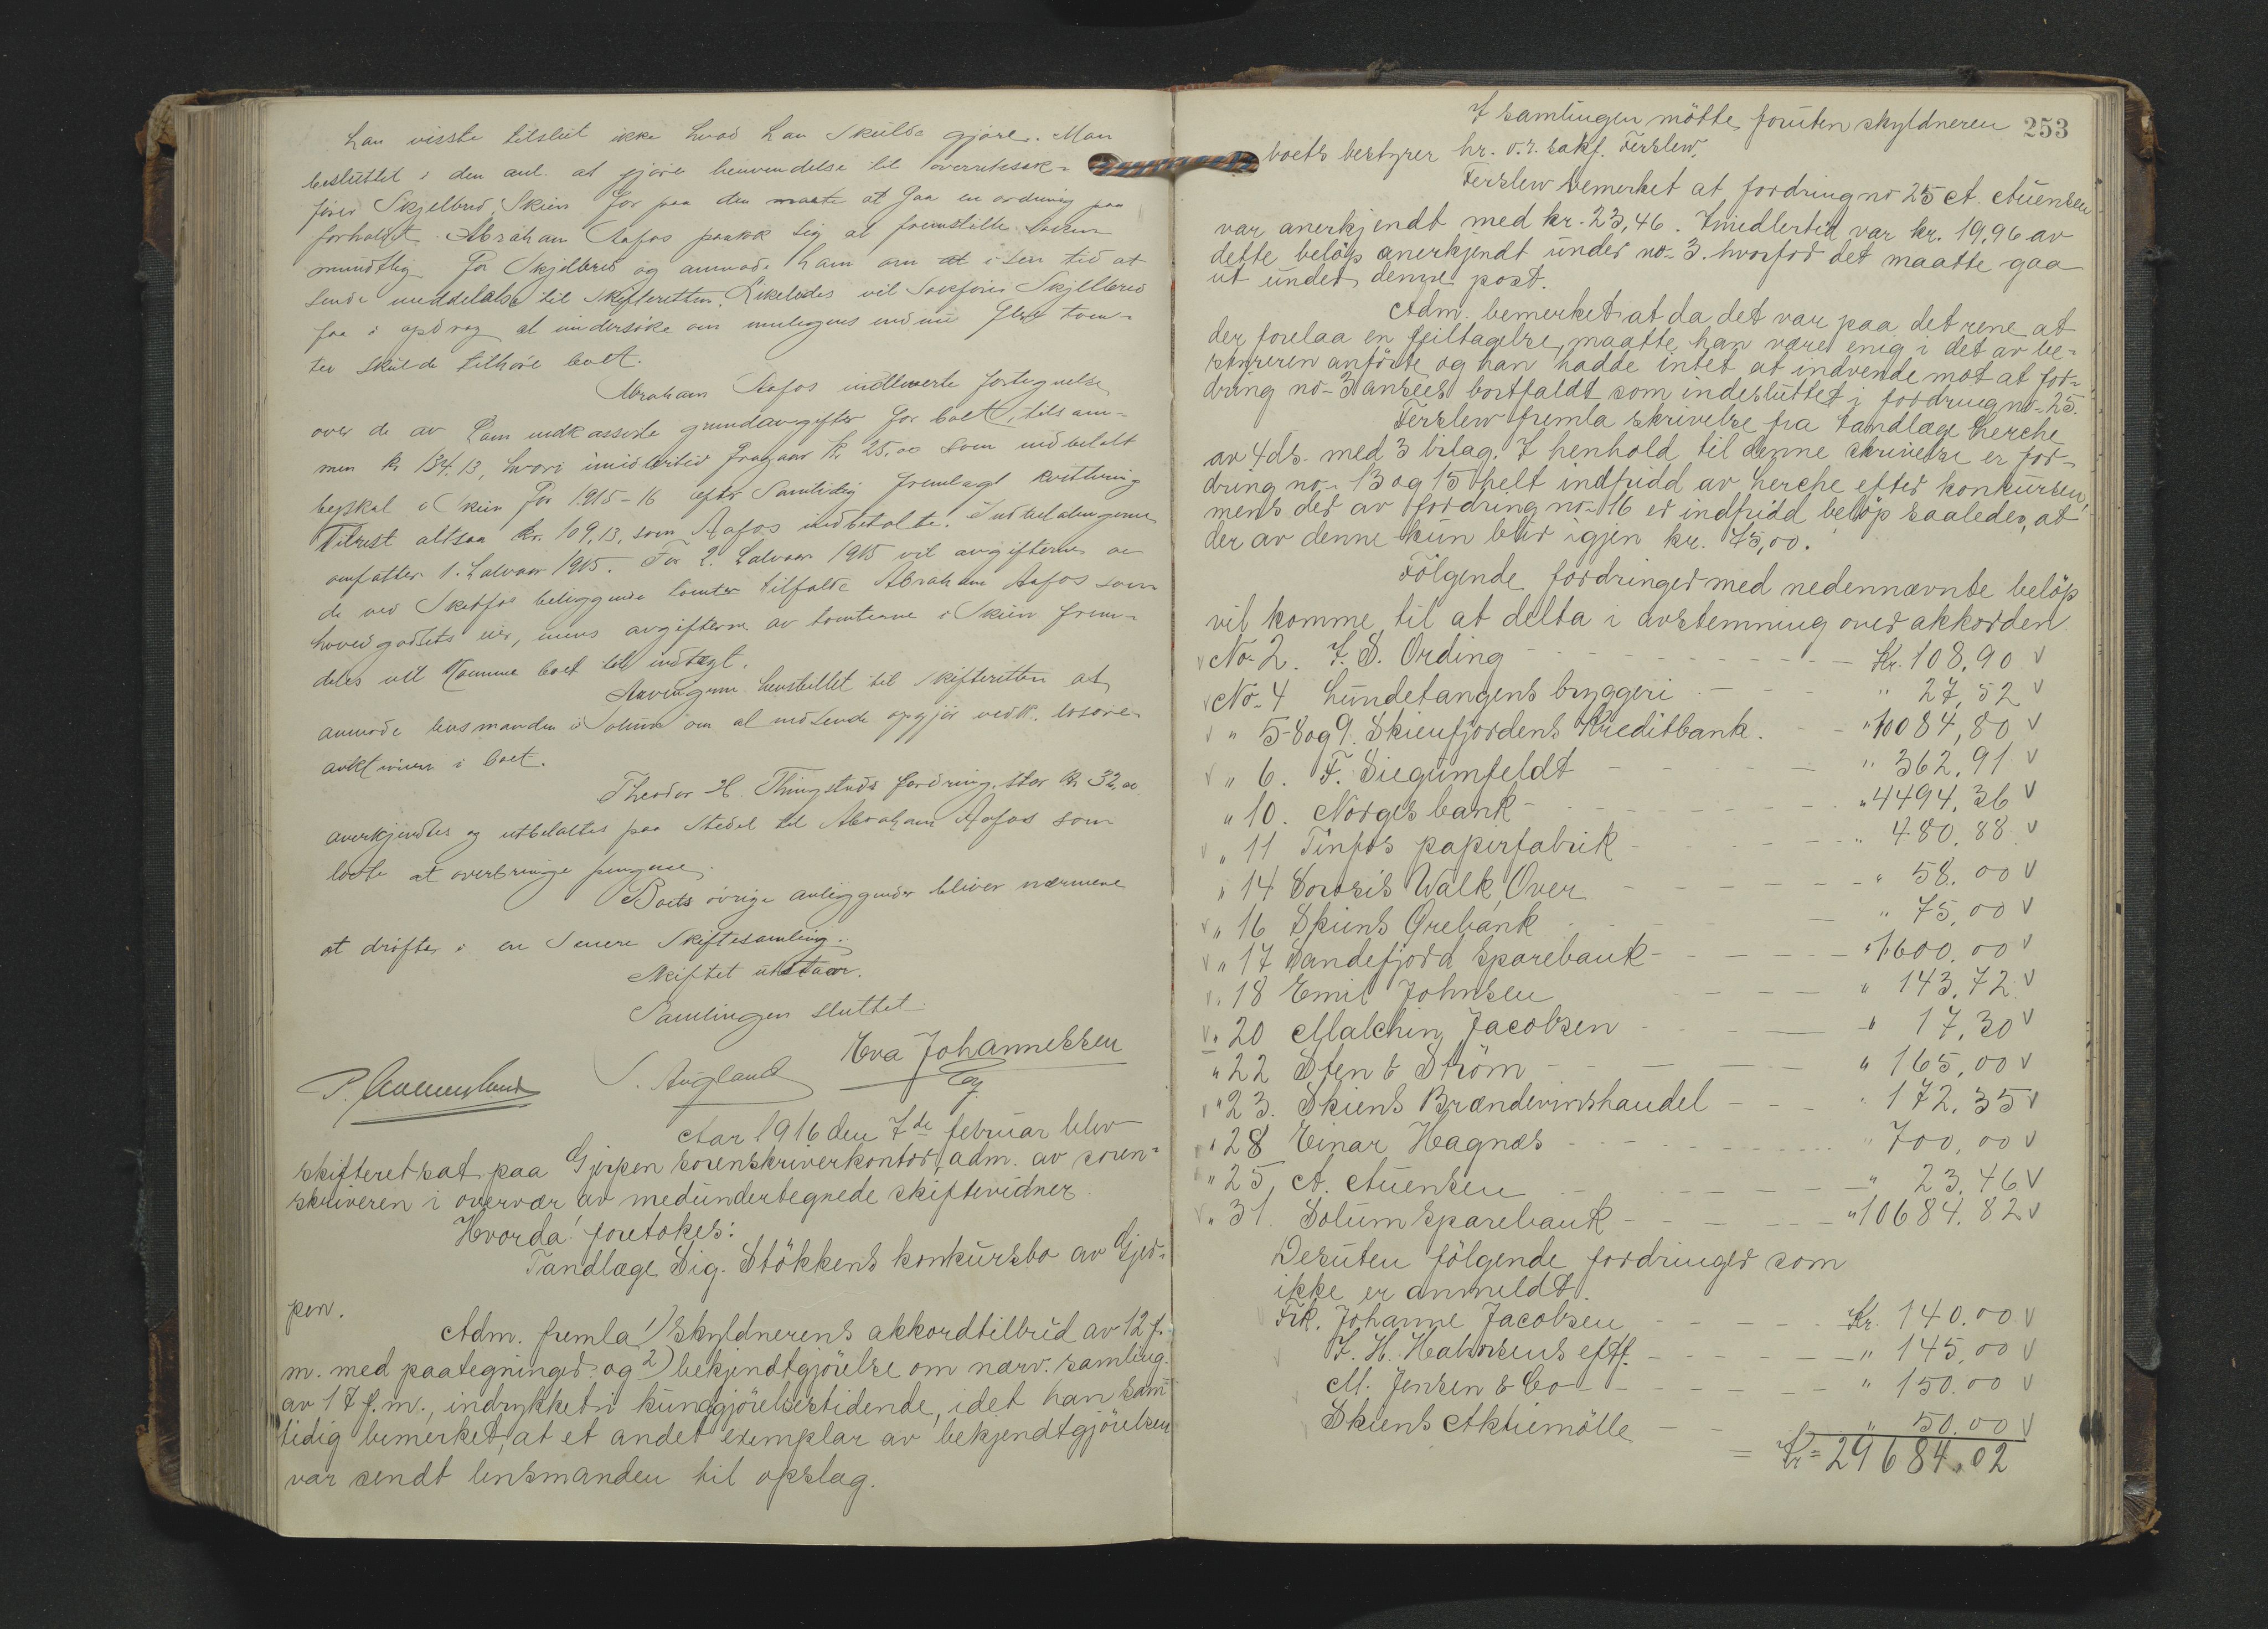 han visste tilslut ikke hvad han skulde gjøre. Man
besluttet i den anl. at gjøre henvendelse til overretssak-
fører Skjelbred, Skien for paa den maate at faa en ordning paa
forholdet. Abraham Aafos paatok sig at fremstille saken
mundtlig for Skjelbred og anmode ham om at i sin tid at
sende meddelelse til skifteretten. Likeledes vil Sakfører Skjelbred
faa i opdrag at undersøke om muligens endnu flere tom-
ter skulde tilhøre boet.
Abraham Aafos indleverte fortegnelse
over de av ham indkasserte grundavgifter for boet, tilsam-
men kr 134,13, hvori imidlertid fragaar kr. 25,00 som indbetalt
byskat i Skien for 1915-16 efter samtidig fremlagt kvittering
Tilrest altsaa kr. 109,13, som Aafos indbetalte. Indbetalingerne
omfatter 1. halvaar 1915. For 2. halvaar 1915 vil avgifterne av
de ved Skotfos beliggende tomter tilfalde Abraham Aafos som
hovedgodsets eier, mens avgifterne av tomterne i Skien frem-
deles vil komme boet til indtægt.
Arvingerne henstillet til skifteretten at
anmode lensmanden i Solum om at indsende opgjør vedk. løsøre-
auktionen i boet.
Theodor H. Thingstads fordring, stor kr 32,00
anerkjendtes og utbetaltes paa stedet til Abraham Aafos som
lovte at overbringe pengene.
Boets øvrige anliggender bliver nærmere
at drøfte i en senere skiftesamling.
Skiftet utstaar.
Samlingen sluttet.
Eva Johannessen
S. Augland
Aar 1916 den 7de februar blev
skifteret sat paa Gjerpen sorenskriverkontor, adm. av soren-
skriveren i overvær av medundertegnede skiftevidner
Hvorda foretokes:
Tandlæge Sig. Stökkens konkursbo av Gjer-
pen.
Adm. fremla 1) skyldnerens akkordtilbud av 12 f.
m. med paategninger og 2) bekjendtgjörelse om nærv. samling
av 17 f.m., indrykket i kundgjörelsestidende, idet han sam-
tidig bemerket, at et andet exemplar av bekjendtgjörelsen
var sendt lensmanden til opslag.
253
I samlingen mötte foruten skyldneren
boets bestyrer hr. o.r. sakf. Ferslew.
Ferslew bemerket at fordring no 25 A. Auensen
var anerkjendt med kr. 23,46. Imidlertid var kr. 19,96 av
dette belöp anerkjendt under no. 3. hvorfor det maatte gaa
ut under denne post.
Adm. bemerket at da det var paa det rene at
der forelaa en feiltagelse, maatte han være enig i det av be-
styreren anförte og han hadde intet at indvende mot at for-
dring no. 3 ansees bortfaldt som indesluttet i fordring no. 25.
Ferslew fremla skrivelse fra tandlæge Lerche
av 4 ds. med 3 bilag. I henhold til denne skrivelse er for-
dring no. 13 og 15 helt indfridd av Lerche efter konkursen,
mens der av fordring no. 16 er indfridd belöp saaledes, at
der av denne kun blir igjen kr. 75,00.
Fölgende fordringer med nedennævnte belöp
vil komme til at delta i avstemning over akkorden
No. 2. J. S. Ording Kr. 108,90 v
No. 4 Lundetangens bryggeri " 27,52 v
" 5-8 og 9. Skiensfjordens Kreditbank. " 10084,80 v
" 6. F. Siegumfeldt " 362,91 v
" 10. Norges bank " 4494,36 v
" 11 Tinfos papirfabrik " 480,88 v
" 14 Sorosis Walk Over " 58,00 v
" 16 Skiens Ørebank " 75,00 v
" 17 Sandefjord Sparebank " 1600,00 v
" 18 Emil Johnsen " 143,72 v
" 20 Malchin Jacobsen " 17,30 v
" 22 Sten & Ström " 165,00 v
" 23. Skiens Brændevinshandel " 172,35 v
" 28 Einar Hagnæs " 700,00 v
" 25, A. Auensen " 23,46 v
" 31. Solum Sparebank " 10684.82 v
Desuten fölgende fordringer som
ikke er anmeldt.
Frk. Johanne Jacobsen Kr. 140.00 v
J. H. Halvorsens eftf. " 145,00 v
M. Jensen & Co " 150.00 v
Skiens Aktiemölle " 50.00 v
= Kr = 29684,02